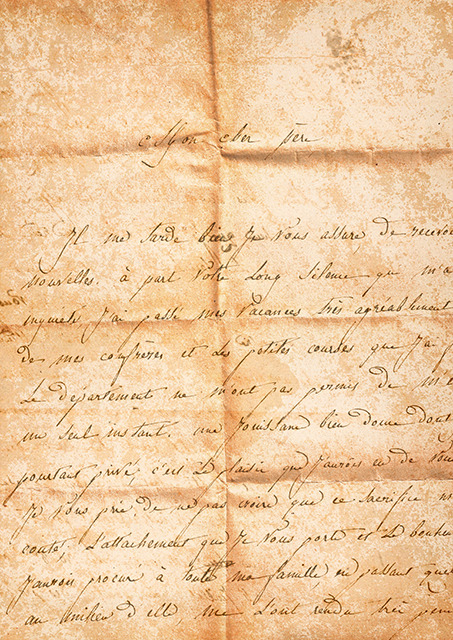 Mon cher père
Il me tarde bien Je vous assure, de recevoir
nouvelles. à part votre Long silence qui m'a
J'ai passé mes Vacances très agréablement
de mes confrères et Les petites courses que J'ai
Le département ne m'ont pas permis de m'e
un seul instant. une Jouissance bien douce dont
pourtant privé c'est Le plaisir que J'aurois eu de vous
Je vous prie, de ne pas croire que ce sacrifice
couté, L'attachement que Je vous porte et Le bonheur
J'aurois procuré à toute ma famille, en passant quel
au milieu d'elle me L'ont rendu très pen